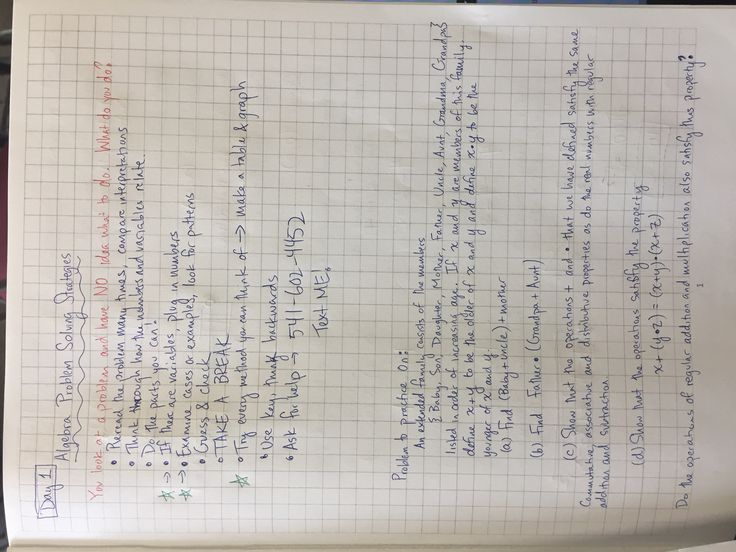 Day 1
Algebra Problem Solving Strategies
You look at a problem and have NO idea what to do. What do you do?
• Reread the problem many times, compare interpretations
• Think through how the numbers and variables relate.
• Do the parts you can!
☆ → • If there are variables, plug in numbers
☆ → • Examine cases or examples, look for patterns
• Guess & Check
• TAKE A BREAK
☆ • Try every method you can think of → make a table & graph
• Use key, think backwards
• Ask for help → 541-602-4452
Text ME!
Problem to practice on:
An extended family consists of the members
{ Baby, Son, Daughter, Mother, Father, Uncle, Aunt, Grandma, Grandpa}
listed in order of increasing age. If x and y are members of this family,
define x+y to be the older of x and y and define x•y to be the
younger of x and y.
(a) Find (Baby+uncle)+mother
(b) Find Father•(Grandpa+Aunt)
(c) Show that the operations + and • that we have defined satisfy the same
commutative, associative and distributive properties as do the real numbers with regular
addition and subtraction
(d) Show that the operations satisfy the property
x+(y•z) = (x+y)•(x+z)
Do the operations of regular addition and multiplication also satisfy this property?
1